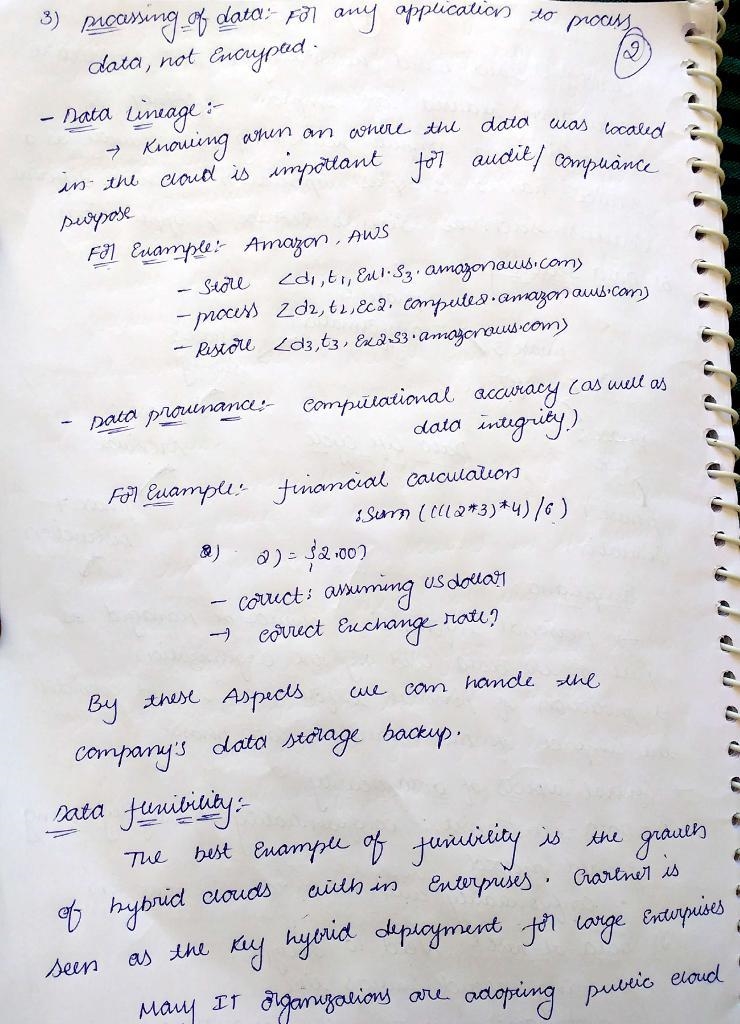 3) processing of data:- For any application to process
②
data, not Encrypted.
- Data Lineage :-
→ Knowing when an where the data was located
in the cloud is important for audit/compliance
purpose
For Example:- Amazon, AWS
- Store <d1,t1, Ex1.S3.amazonaws.com>
- process <d2,t2,Ec2.compute2.amazonaws.com>
- Restore <d3,t3, Ex2.S3.amazonaws.com>
- Data provenance:- computational accuracy (as well as
data integrity)
For Example:- financial calculations
:Sum ((((2*3)*4)/6)
2) = $2.00)
- correct: assuming US dollar
→ correct Exchange rate?
By these Aspects we can hande the
company's data storage backup.
Data
The best Example of is the
of hybrid clouds within Enterprises. Gartner is
seen as the key hybrid deployment for large Enterprises
Many IT organizations are adopting public cloud